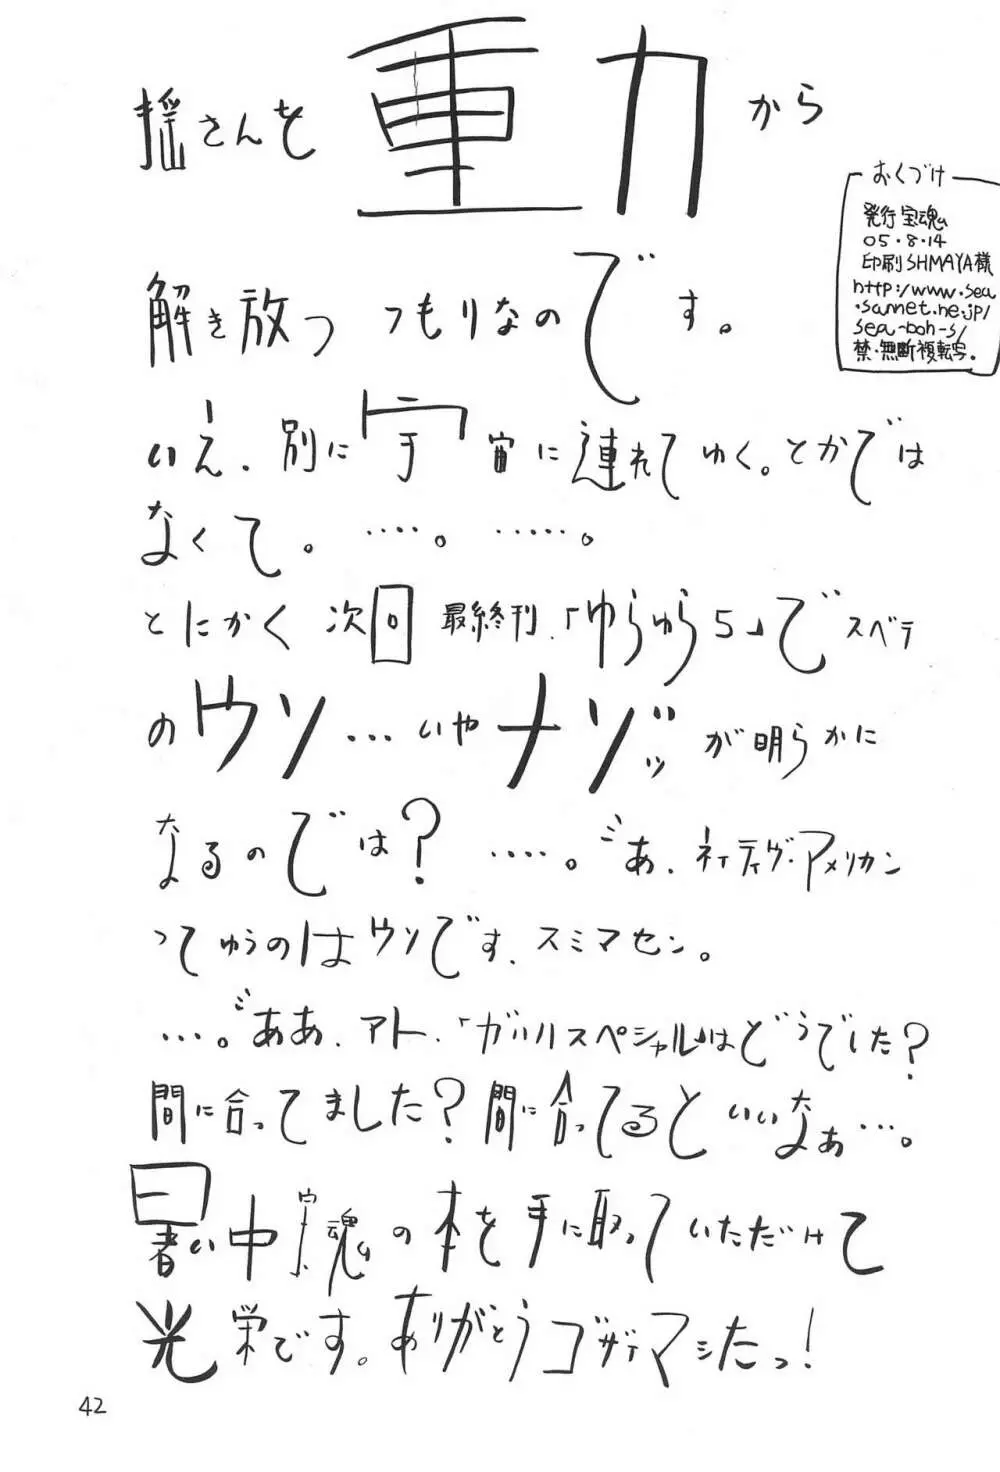 揺さんを重力から
解き放つつもりなのです。
いえ、別に宇宙に連れてゆく。とかでは
なくて。…‥。……。
とにかく次回最終刊、「ゆらゆら5」でスベテ
のウソ…いやナゾッッが明らかに
なるのでは?…‥。あ、ネイティヴ・アメリカン
ってゆうのはウソです、スミマセン。
…。ああ、アト、「ガルルスペシャル」はどうでした?
間に合ってました?間に合ってるといいなぁ…。
暑い中宝魂の本を手に取っていただけて
光栄です。ありがとうゴザイマシたっ!
おくづけ
発行 宝魂
05・8・14
印刷 SHMAYA様
http://www.sea
.sannet.ne.jp/
sea-boh-s/
禁・無断複転写。
42